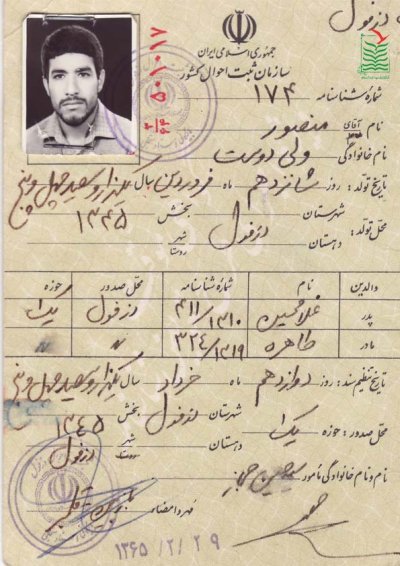 دزفول
جمهوری اسلامی ایران
سازمان ثبت احوال کشور
۵۰۱۰۱۷
شماره شناسنامه ۱۷۴
نام آقای منصور
نام خانوادگی ولی دوست
تاریخ تولد: روز شانزدهم ماه فروردین سال یکهزار و سیصد و چهل و پنج
۱۳۴۵
محل تولد: شهرستان دزفول بخش
دهستان شهر روستا
والدین نام شماره شناسنامه محل صدور حوزه
پدر غلامحسین ۴۱۱/۱۳۱۰ دزفول یک
مادر طاهره ۳۲۴/۱۳۱۹ " "
تاریخ تنظیم سند: روز دوازدهم ماه خرداد سال یکهزار و سیصد و چهل و پنج
۱۳۴۵
محل صدور: حوزه یک شهرستان دزفول بخش
دهستان شهر روستا دزفول
نام و نام خانوادگی مأمور
مهر و امضاء
۱۳۶۵/۲/۲۹